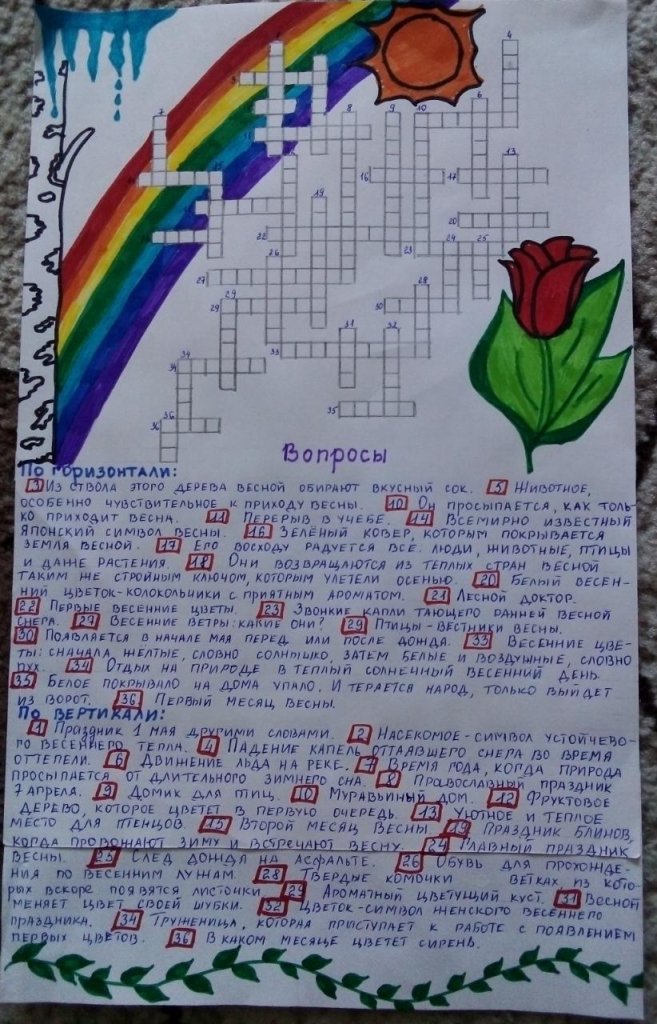 1
4
3
6
7
8
9
10
11
13
16
17
19
20
22
23
24
25
26
27
28
29
30
31
32
33
34
35
36
36
Вопросы
По горизонтали:
3 Из ствола этого дерева весной обирают вкусный сок. 5 Животное,
особенно чувствительное к приходу весны. 10 Он просыпается, как толь-
ко приходит весна. 11 Перерыв в учёбе. 14 Всемирно известный
японский символ весны. 16 Зелёный ковер, которым покрывается
земля весной. 17 Его восходу радуется все: люди, животные, птицы
и даже растения. 18 Они возвращаются из теплых стран весной
таким же стройным ключом, которым улетели осенью. 20 Белый весен-
ний цветок-колокольчики с приятным ароматом. 21 Лесной доктор.
22 Первые весенние цветы. 23 Звонкие капли тающего ранней весной
снега. 27 Весенние ветры: какие они? 29 Птицы-вестники весны.
30 Появляется в начале мая перед или после дождя. 33 Весенние цве-
ты: сначала жёлтые, словно солнышко, затем белые и воздушные, словно
пух. 34 Отдых на природе в теплый солнечный весенний день.
35 Белое покрывало на дома упало. И теряется народ, только выйдет
из ворот. 36 Первый месяц весны.
По вертикали:
1 Праздник 1 мая другими словами. 2 Насекомое-символ устойчево-
го весеннего тепла. 4 Падение капель оттаявшего снега во время
оттепели. 6 Движение льда на реке. 7 Время года, когда природа
просыпается от длительного зимнего сна. 8 Православный праздник
7 апреля. 9 Домик для птиц. 10 Муравьиный дом. 12 Фруктовое
дерево, которое цветет в первую очередь. 13 Уютное и теплое
место для птенцов. 15 Второй месяц весны. 19 Праздник блинов,
когда провожают зиму и встречают весну. 24 Главный праздник
весны. 25 След дождя на асфальте. 26 Обувь для прохожде-
ния по весенним лужам. 28 Твердые комочки ветках из кото-
рых вскоре появятся листочки. 29 Ароматный цветущий куст. 31 Весной
меняет цвет своей шубки. 32 Цветок-символ женского весеннего
праздника. 34 Труженица, которая приступает к работе с появлением
первых цветов. 36 В каком месяце цветёт сирень.